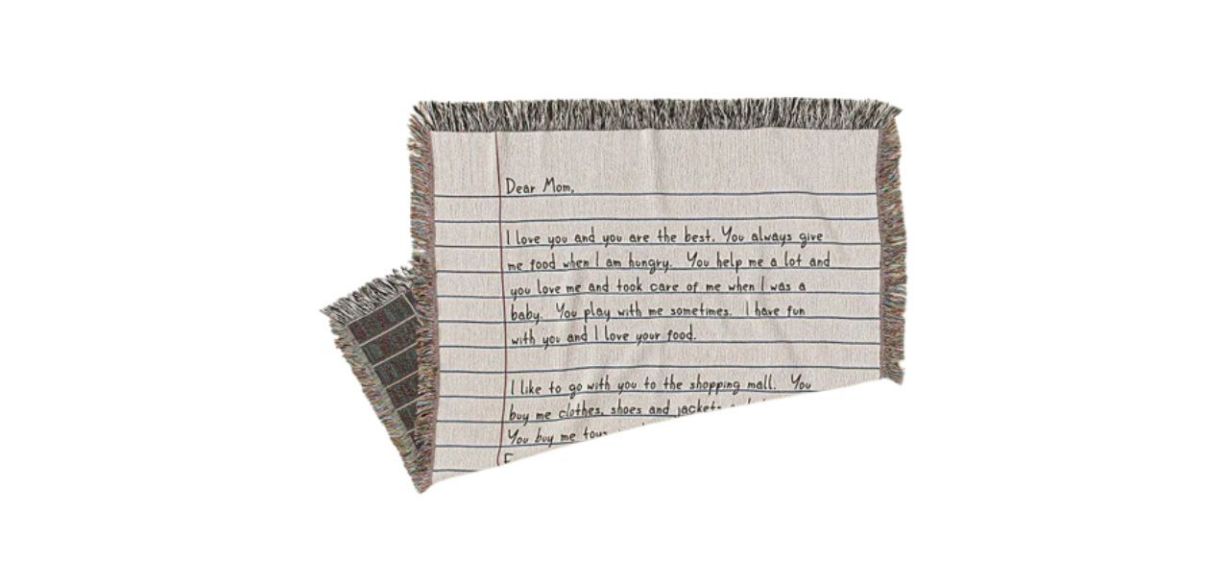 Dear Mom,
I love you and you are the best. You always give
me food when I am hungry. You help me a lot and
you love me and took care of me when I was a
baby. You play with me sometimes. I have fun
with you and I love your food.
I like to go with you to the shopping mall. You
buy me clothes, shoes and jackets
You buy me toys